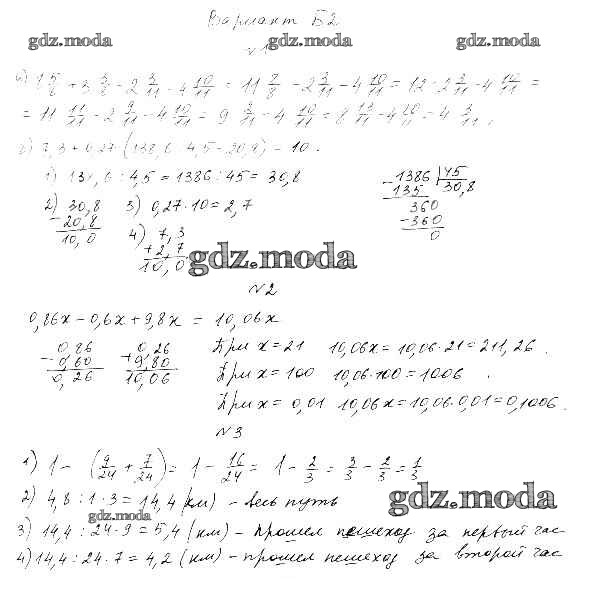 Вариант Б2
gdz.moda gdz.moda gdz.moda
№1
1 5/8 + 3 3/8 - 2 3/11 - 4 10/11 = 11 8/8 - 2 3/11 - 4 10/11 = 12 - 2 3/11 - 4 10/11 =
= 11 11/11 - 2 9/11 - 4 10/11 = 9 3/11 - 4 10/11 = 8 13/11 - 4 10/11 = 4 3/11.
7,3 + 0,27 · (138,6 : 4,5 - 20,8) = 10.
1) 138,6 : 4,5 = 1386 : 45 = 30,8
2) 30,8
- 20,8
10,0
3) 0,27 · 10 = 2,7
4) 7,3
+ 2,7
10,0
- 1386 | 45
135 | 30,8
360
- 360
0
gdz.moda
№2
0,86x - 0,6x + 9,8x = 10,06x
0,86
- 0,60
0,26
0,26
+ 9,80
10,06
При x = 21 10,06x = 10,06 · 21 = 211,26.
При x = 100 10,06 · 100 = 1006.
При x = 0,01 10,06x = 10,06 · 0,01 = 0,1006.
№3
1) 1 - (9/24 + 7/24) = 1 - 16/24 = 1 - 2/3 = 3/3 - 2/3 = 1/3
2) 4,8 : 1 · 3 = 14,4 (км) - весь путь
gdz.moda gdz.moda
3) 14,4 : 24 · 9 = 5,4 (км) - прошел пешеход за первый час
4) 14,4 : 24 · 7 = 4,2 (км) - прошел пешеход за второй час